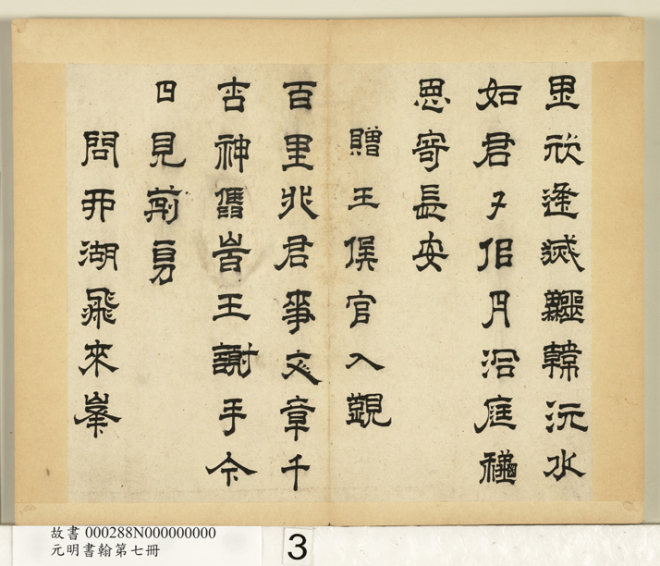 逢滅韓沅水
如君子佀月沿庭
思寄長安
贈王侯官入覲
百里非君事文章千
古神皆王謝手今
日見荊
問西湖飛來峯
故書 000288N000000000
元明書翰第七冊
3